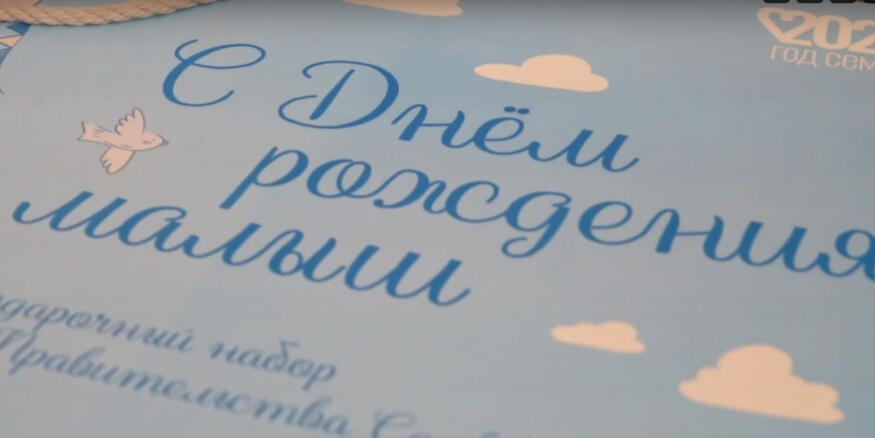 202
ГОД СЕМ
С Днём
рождения
малыш
дарочный набор
Правительства